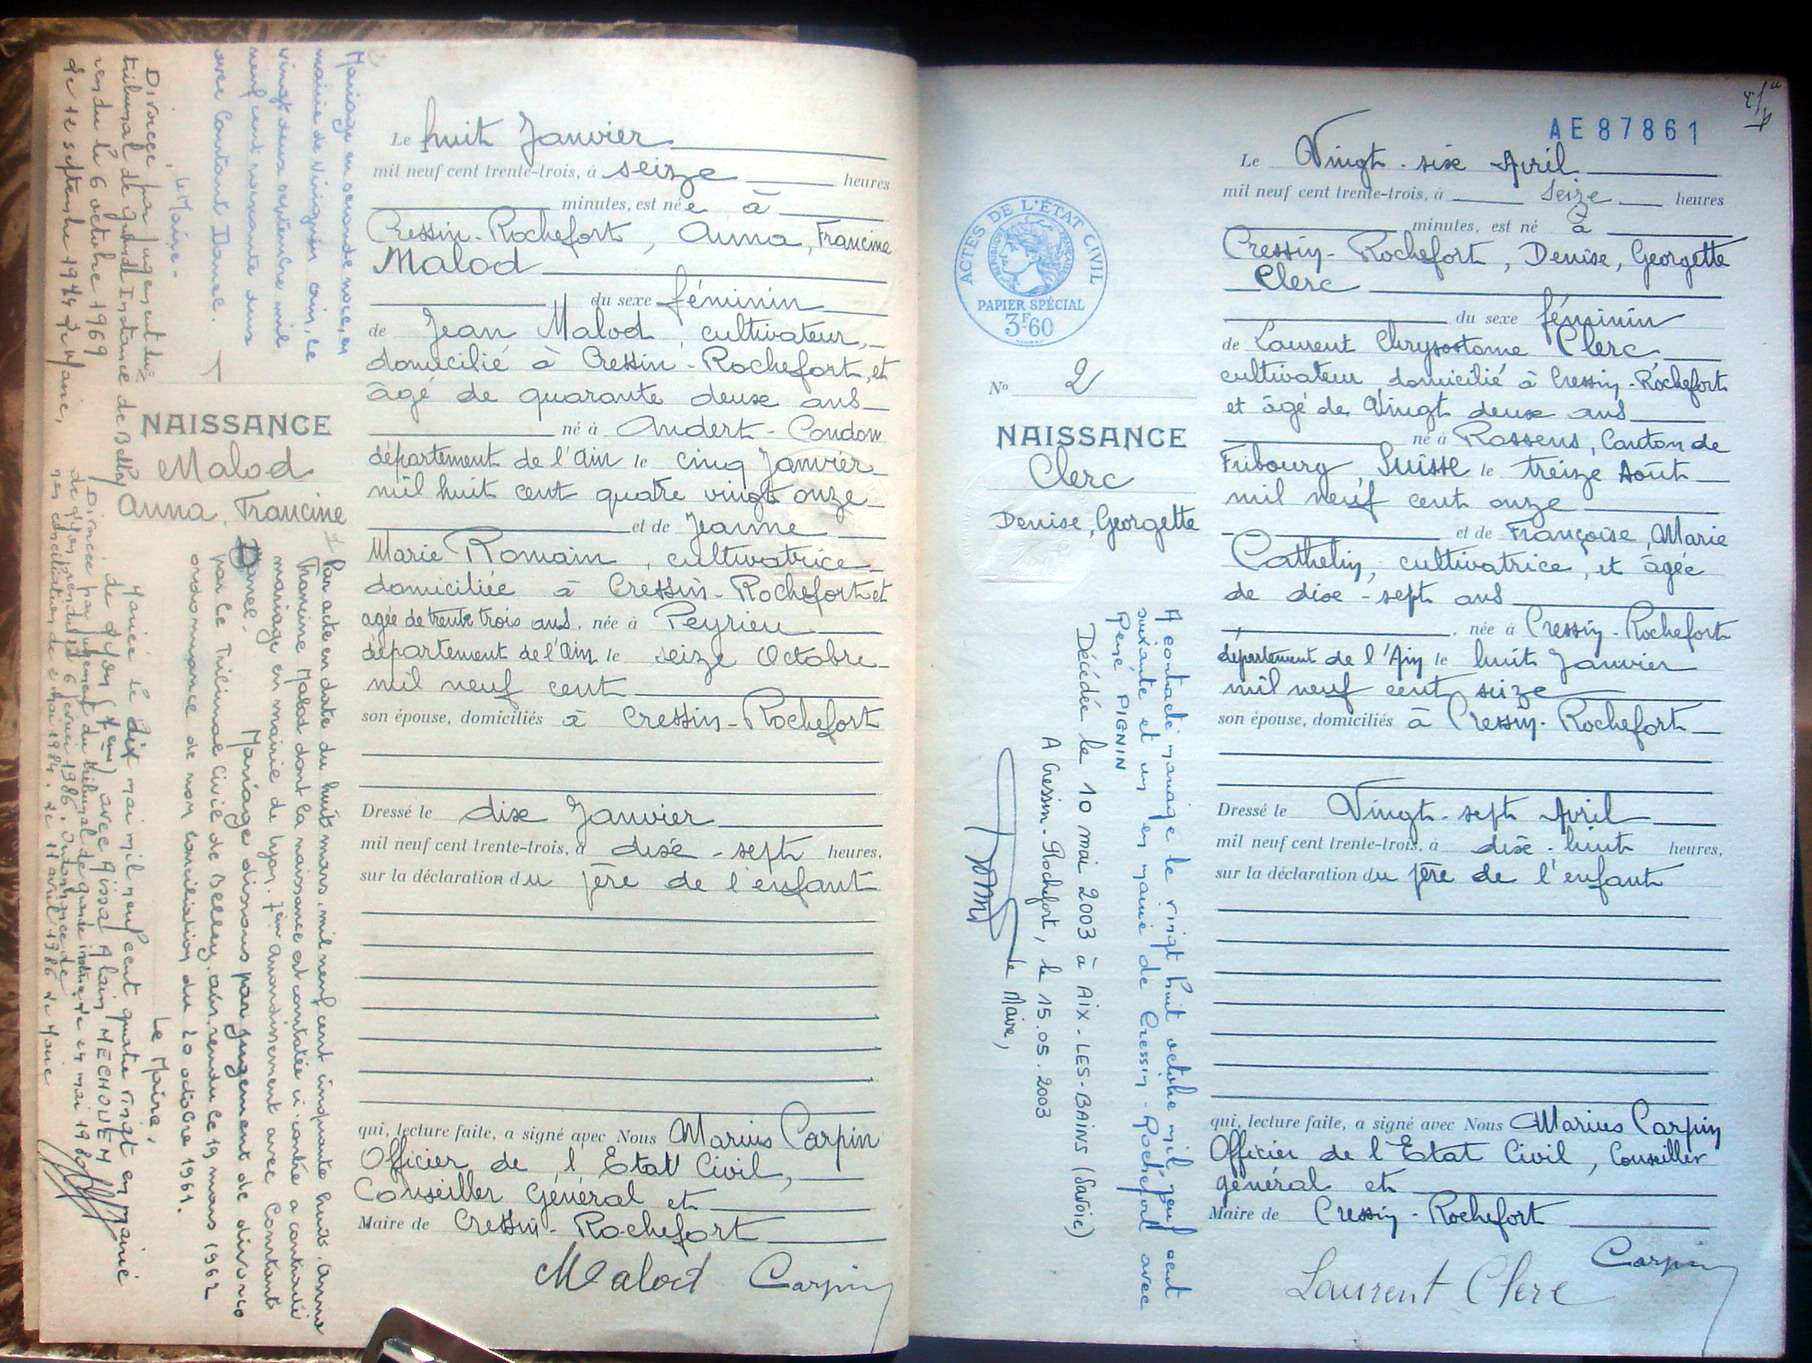 Mariage en seconde noce en
mairie de Virignin ain, le
vingt deux septembre mil
neuf cent soixante deux
avec Constant Danel.
Le Maire.
Divorcé par jugement du
tribunal de grande Instance de Belley
rendu le 6 octobre 1969
le 12 septembre 1974 Le Maire,
NAISSANCE
Malod
Anna, Francine
Par acte en date du huit mars mil neuf cent cinquante huit, Anna
Francine Malod dont la naissance est constatée ci-contre a contracté
mariage en mairie de Lyon 7ème arrondissement avec Constant
Danel.
Mariage dissous par jugement de divorce
par le Tribunal Civil de Belley, ain, rendu le 19 mars 1962
ordonnance de non conciliation du 20 octobre 1961.
Le Maire,
Mariée le dix mai mil neuf cent quatre vingt en mairie
de Lyon (7ème) avec Aïssa Alain MECHOUEM
Divorcée par jugement du tribunal de grande instance
de Lyon rendu le 6 février 1986. Ordonnance de
non conciliation de 2 mai 1984. Le 11 avril 1986 Le Maire
Le huit Janvier
mil neuf cent trente-trois, à seize heures
minutes, est née à
Cressin-Rochefort, Anna, Francine
Malod
du sexe féminin
de Jean Malod, cultivateur,
domicilié à Cressin-Rochefort, et
âgé de quarante deux ans
né à Andert-Condon
département de l'Ain le cinq Janvier
mil huit cent quatre vingt onze
et de Jeanne
Marie Romain, cultivatrice
domiciliée à Cressin-Rochefort et
agée de trente trois ans. née à Peyrieu
département de l'Ain le seize Octobre
mil neuf cent
son épouse, domiciliés à Cressin-Rochefort
Dressé le dix Janvier
mil neuf cent trente-trois, à dix-sept heures,
sur la déclaration du père de l'enfant
qui, lecture faite, a signé avec Nous Marius Carpin
Officier de l'Etat Civil,
Conseiller Général et
Maire de Cressin-Rochefort
Malod Carpin
AE 87861
ACTES DE L'ÉTAT CIVIL
PAPIER SPÉCIAL
3F60
No 2
NAISSANCE
Clerc
Denise, Georgette
A contracté mariage le vingt huit octobre mil neuf cent
soixante et un en mairie de Cressin-Rochefort avec
René PIGNIN
Décédée le 10 mai 2003 à AIX-LES-BAINS (Savoie)
A Cressin-Rochefort, le 15.05.2003
Le Maire,
Le Vingt-six Avril
mil neuf cent trente-trois, à Seize heures
minutes, est né à
Cressin-Rochefort, Denise, Georgette
Clerc
du sexe féminin
de Laurent Chrysostome Clerc
cultivateur domicilié à Cressin-Rochefort
et âgé de Vingt deux ans
né à Rossens, Canton de
Fribourg Suisse le treize Août
mil neuf cent onze
et de Françoise, Marie
Cathelin, cultivatrice, et âgée
de dix-sept ans
née à Cressin-Rochefort
département de l'Ain le huit Janvier
mil neuf cent seize
son épouse, domiciliés à Cressin-Rochefort
Dressé le Vingt-sept Avril
mil neuf cent trente-trois, à dix-huit heures,
sur la déclaration du père de l'enfant
qui, lecture faite, a signé avec Nous Marius Carpin
Officier de l'Etat Civil, Conseiller
général et
Maire de Cressin-Rochefort
Laurent Clerc Carpin